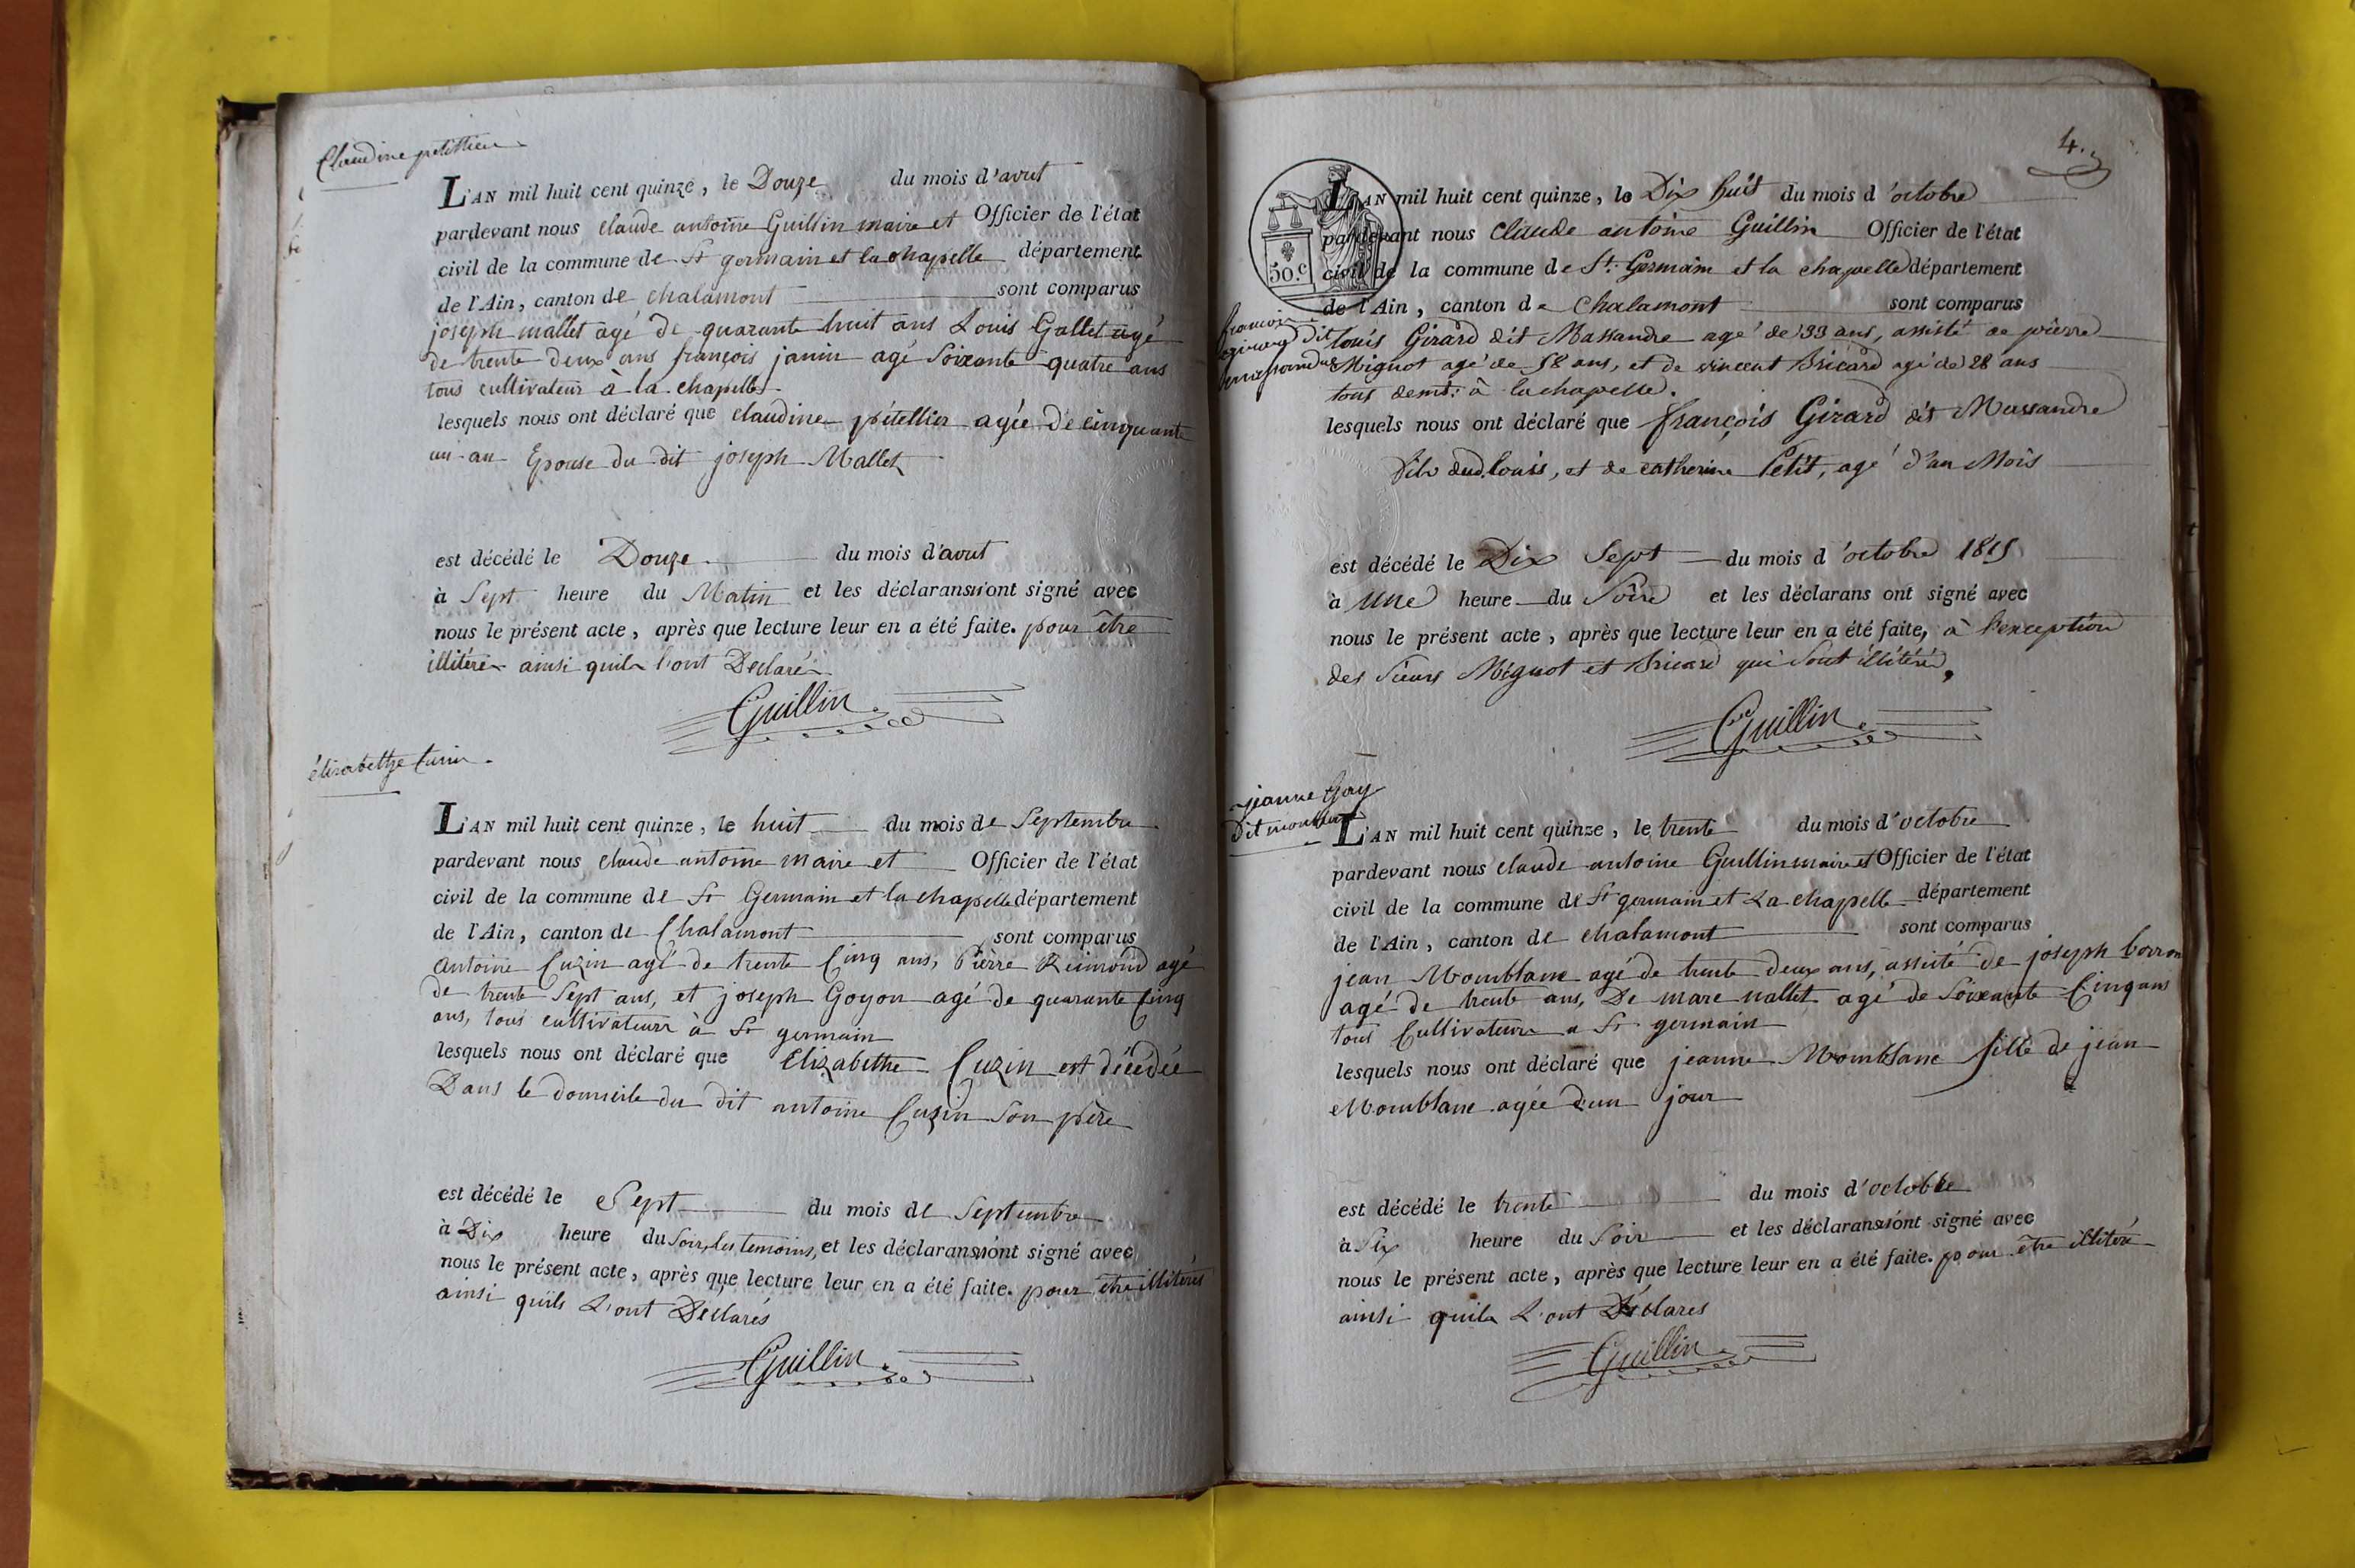 Claudine petellier
L'AN mil huit cent quinze, le Douze du mois d'avril
pardevant nous claude antoine Guillin maire et Officier de l'état
civil de la commune de St germain et la chapelle département
de l'Ain, canton de chalamont sont comparus
joseph mallet agé de quarante huit ans Louis Gallet agé
de trente deux ans françois janin agé Soixante quatre ans
tous cultivateur à la chapelle
lesquels nous ont déclaré que claudine pétellier agée de cinquante
un an Epouse du dit joseph Mallet
est décédé le Douze du mois d'avril
à Sept heure du Matin et les déclarans n'ont signé avec
nous le présent acte, après que lecture leur en a été faite. pour être
illitéré ainsi quils l'ont Declaré
Guillin
élizabethe Cuzin
L'AN mil huit cent quinze, le huit du mois de Septembre
pardevant nous claude antoine maire et Officier de l'état
civil de la commune de St Germain et la chapelle département
de l'Ain, canton de Chalamont sont comparus
Antoine Cuzin agé de trente Cinq ans, Pierre Reimond agé
de trente Sept ans, et joseph Goyon agé de quarante Cinq
ans, tous cultivateurs à St germain
lesquels nous ont déclaré que Elizabethe Cuzin est décédée
Dans le domicile du dit antoine Cuzin Son père
est décédé le Sept du mois de Septembre
à Dix heure du Soir, les temoins, et les déclarans n'ont signé avec
nous le présent acte, après que lecture leur en a été faite. pour être illitérés
ainsi quils L'ont Declarés
Guillin
4.
50.c
L'AN mil huit cent quinze, le Dix huit du mois d'octobre
pardevant nous Claude antoine Guillin Officier de l'état
civil de la commune de St. Germain et la chapelle département
de l'Ain, canton de Chalamont sont comparus
françois
girard dit
massandre
Louis Girard dit Massandre agé de 33 ans, assisté de pierre
Mignot agé de 58 ans, et de vincent Bricard agé de 28 ans
tous demt. à la chapelle.
lesquels nous ont déclaré que françois Girard dit Massandre
fils dud. Louis, et de catherine Petit, agé d'un Mois
est décédé le Dix Sept du mois d'octobre 1815
à une heure du Soire et les déclarans ont signé avec
nous le présent acte, après que lecture leur en a été faite, à l'exception
des Sieurs Mignot et Bricard qui Sont illitérés,
Guillin
jeanne Gay
Dit
L'AN mil huit cent quinze, le trente du mois d'octobre
pardevant nous claude antoine Guillin maire et Officier de l'état
civil de la commune de St germain et La chapelle département
de l'Ain, canton de chalamont sont comparus
jean Momblanc agé de trente deux ans, assisté de joseph borron
agé de trente ans, De marc nallet agé de Soixante Cinq ans
tous Cultivateurs a St germain
lesquels nous ont déclaré que jeanne Momblanc fille de jean
Momblanc agée d'un jour
est décédé le trente du mois d'octobre
à Six heure du Soir et les déclarans n'ont signé avec
nous le présent acte, après que lecture leur en a été faite. pour être illitéré
ainsi quils L'ont Déclarés
Guillin